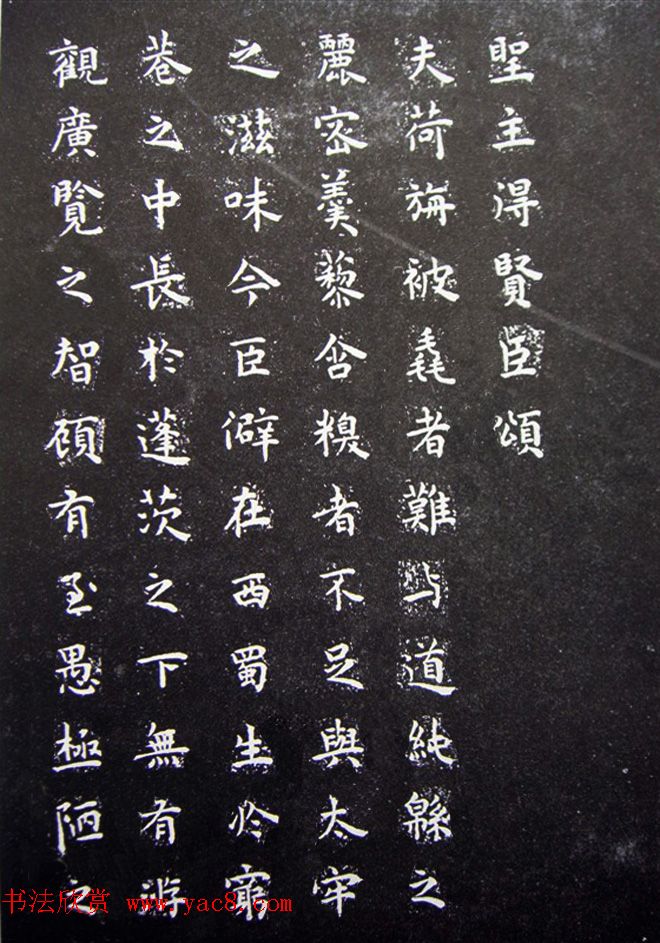 聖主得賢臣頌
夫荷旃被毳者難与道純緜之
麗密羹藜唅糗者不足與太牢
之滋味今臣僻在西蜀生於窮
巷之中長於蓬茨之下無有游
觀廣覽之智顧有至愚極陋之
书法欣赏 www.yac8.com